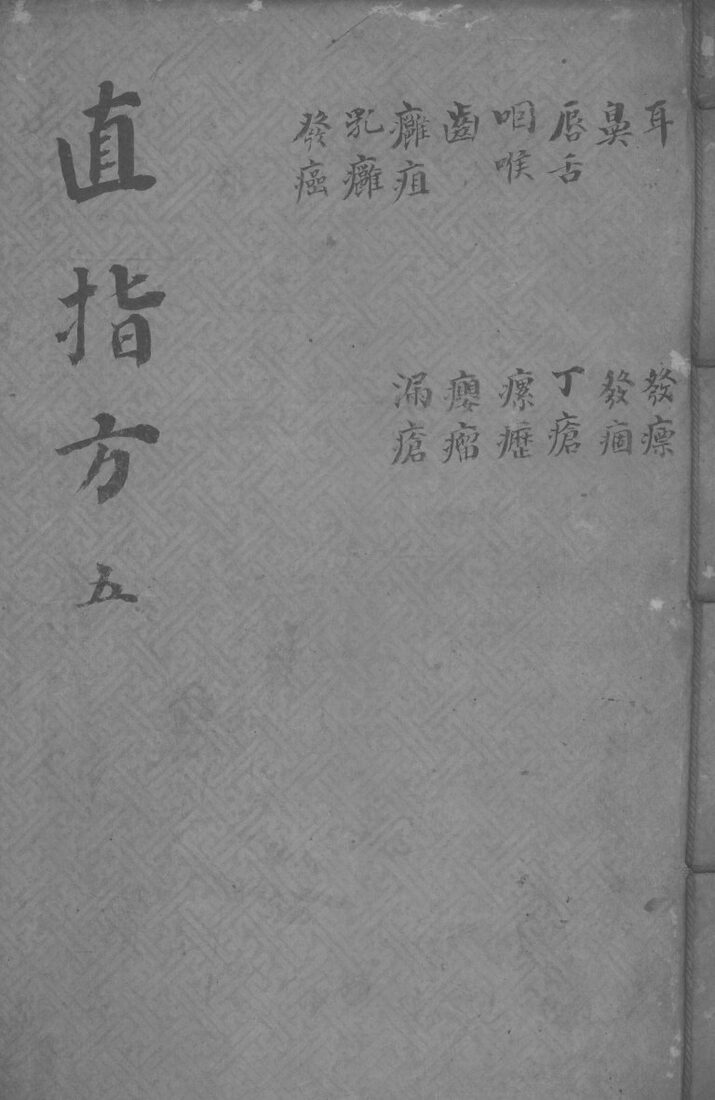 直指方 五
耳
鼻
唇舌
咽喉
齒
癰疽
乳癰
發癌
發瘭
發痼
丁瘡
瘰癧
癭瘤
漏瘡